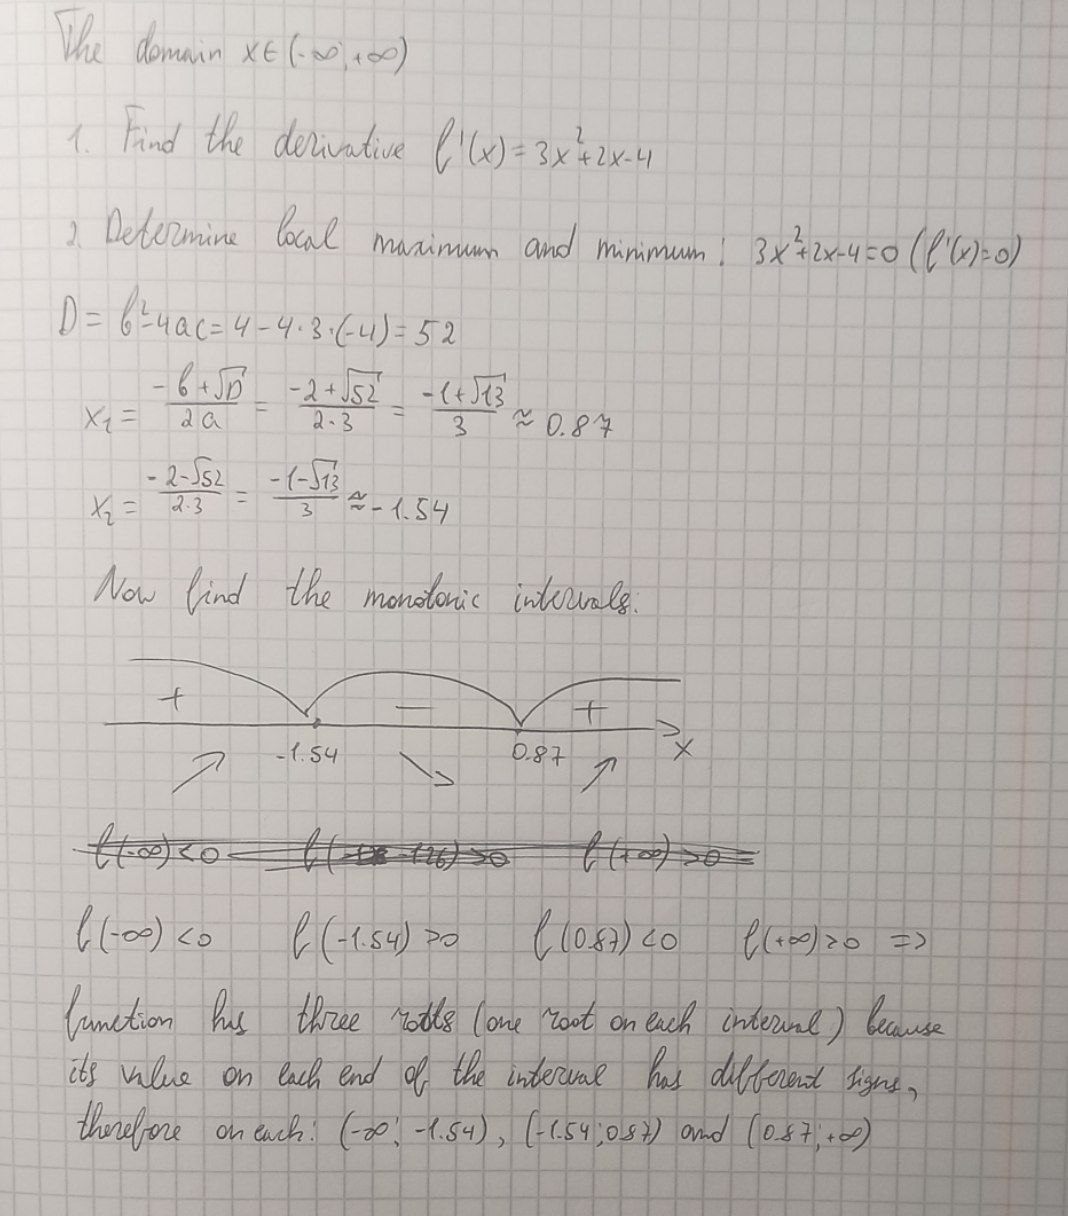 The domain x∈(-∞;+∞)
1. Find the derivative f'(x)=3x²+2x-4
2. Determine local maximum and minimum: 3x²+2x-4=0 (f'(x)=0)
D= b²-4ac= 4-4·3·(-4)=52
x₁= (-b+√D)/(2a) = (-2+√52)/(2·3) = (-1+√13)/3 ≈ 0.87
x₂= (-2-√52)/(2·3) = (-1-√13)/3 ≈ -1.54
Now find the monotonic intervals:
+ − +
-1.54 0.87 x
f(-∞)<0 f(-1.54)>0 f(0.87)<0 f(+∞)>0 =>
function has three roots (one root on each interval) because
its value on each end of the interval has different signs,
therefore on each: (-∞; -1.54), (-1.54;0.87) and (0.87;+∞)